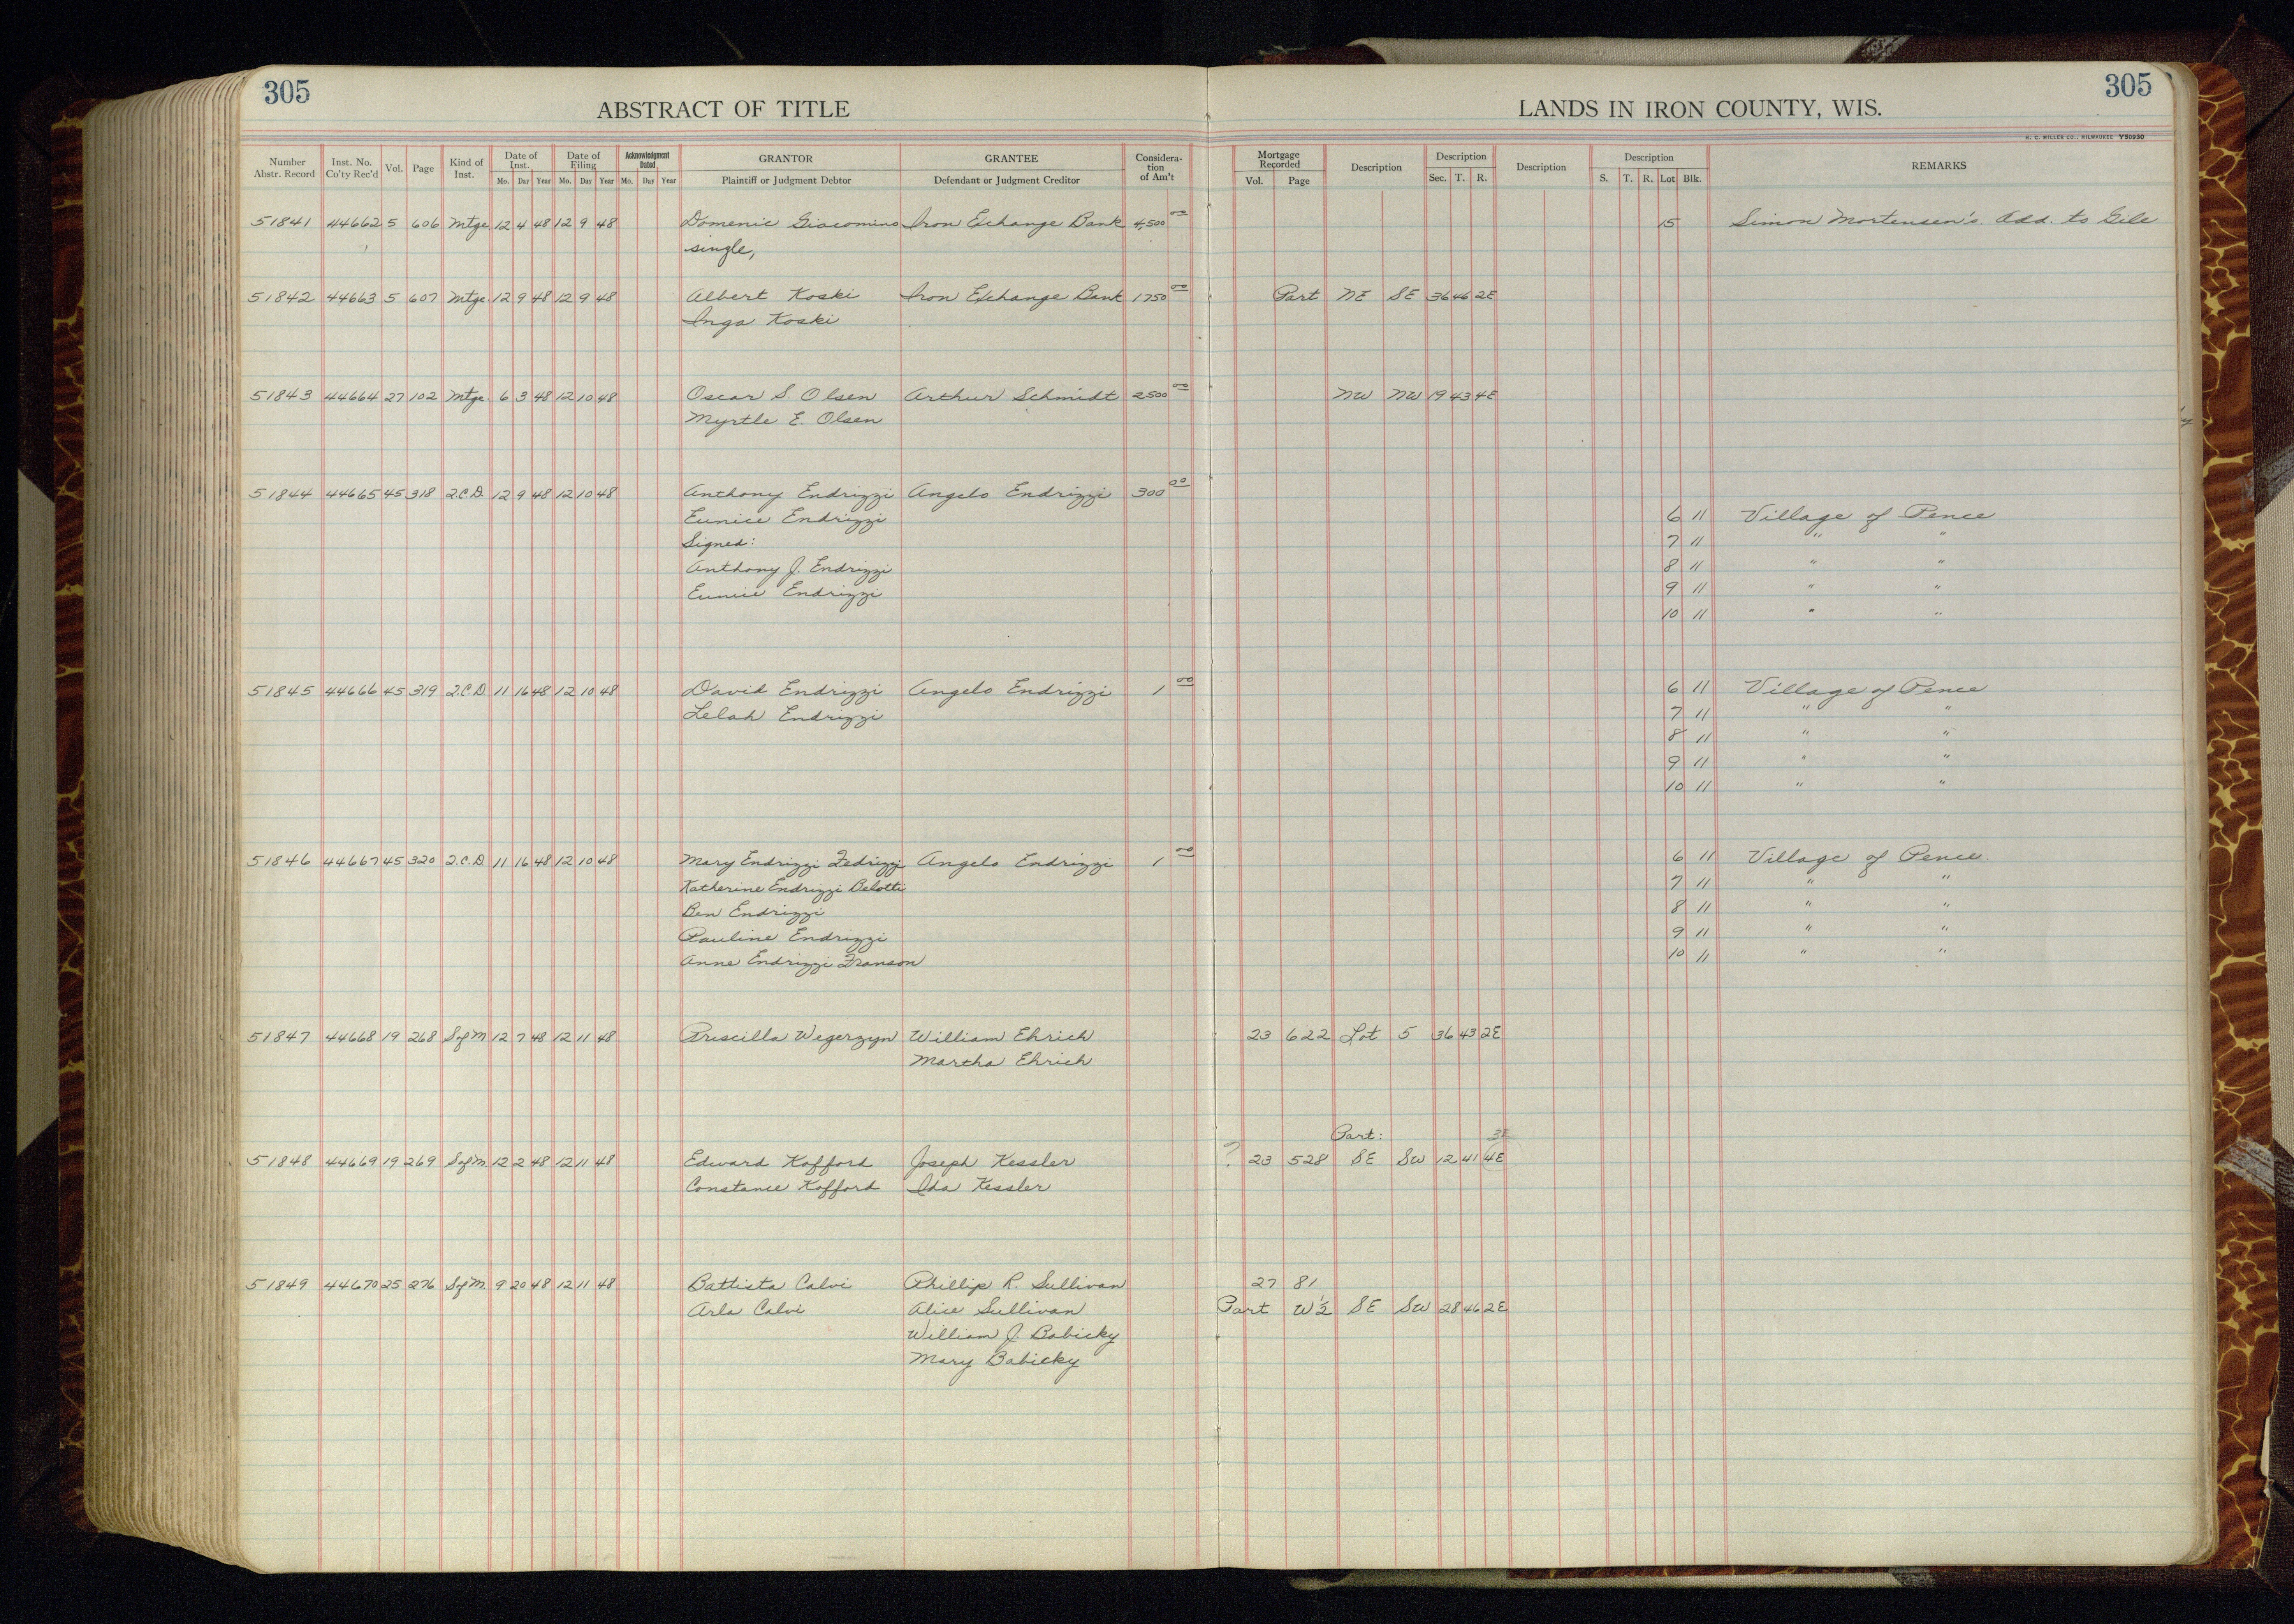 305
305
ABSTRACT OF TITLE
LANDS IN IRON COUNTY, WIS.
H. C. MILLER CO., MILWAUKEE Y50930
Number Abstr. Record Inst. No. Co'ty Rec'd Vol. Page Kind of Inst. Date of Inst. Mo. Day Year Date of Filing Mo. Day Year Acknowledgment Dated Mo. Day Year GRANTOR Plaintiff or Judgment Debtor GRANTEE Defendant or Judgment Creditor Considera-tion of Am't Mortgage Recorded Vol. Page Description Description Sec. T. R. Description Description S. T. R. Lot Blk. REMARKS
51841 44662 5 606 Mtge 12 4 48 12 9 48 Domenic Giacomino Iron Exchange Bank 4,500 00 15 Simon Mortensen's Add. to Gile
single,
51842 44663 5 607 Mtge 12 9 48 12 9 48 Albert Koski Iron Exchange Bank 1750 00 Part NE SE 36 46 2E
Inga Koski
51843 44664 27 102 Mtge 6 3 48 12 10 48 Oscar S. Olsen Arthur Schmidt 2500 00 NW NW 19 43 4E
Myrtle E. Olsen
51844 44665 45 318 Q.C.D. 12 9 48 12 10 48 Anthony Endrizzi Angelo Endrizzi 300 00
Eunice Endrizzi 6 11 Village of Pence
Signed: 7 11 " "
Anthony J. Endrizzi 8 11 " "
Eunice Endrizzi 9 11 " "
10 11 " "
51845 44666 45 319 Q.C.D. 11 16 48 12 10 48 David Endrizzi Angelo Endrizzi 1 00 6 11 Village of Pence
Lelah Endrizzi 7 11 " "
8 11 " "
9 11 " "
10 11 " "
51846 44667 45 320 Q.C.D. 11 16 48 12 10 48 Mary Endrizzi Fedrizzi Angelo Endrizzi 1 00 6 11 Village of Pence.
Katherine Endrizzi Belotti 7 11 " "
Ben Endrizzi 8 11 " "
Pauline Endrizzi 9 11 " "
Anne Endrizzi Franson 10 11 " "
51847 44668 19 268 S of M 12 7 48 12 11 48 Priscilla Wegerzyn William Ehrich 23 622 Lot 5 36 43 2E
Martha Ehrich
Part: 3E
51848 44669 19 269 S of M. 12 2 48 12 11 48 Edward Kofford Joseph Kessler ? 23 528 SE SW 12 41 4E
Constance Kofford Ida Kessler
51849 44670 25 276 S of M. 9 20 48 12 11 48 Battista Calvi Phillip R. Sullivan 27 81
Arla Calvi Alice Sullivan Part W½ SE SW 28 46 2E
William J. Babicky
Mary Babicky